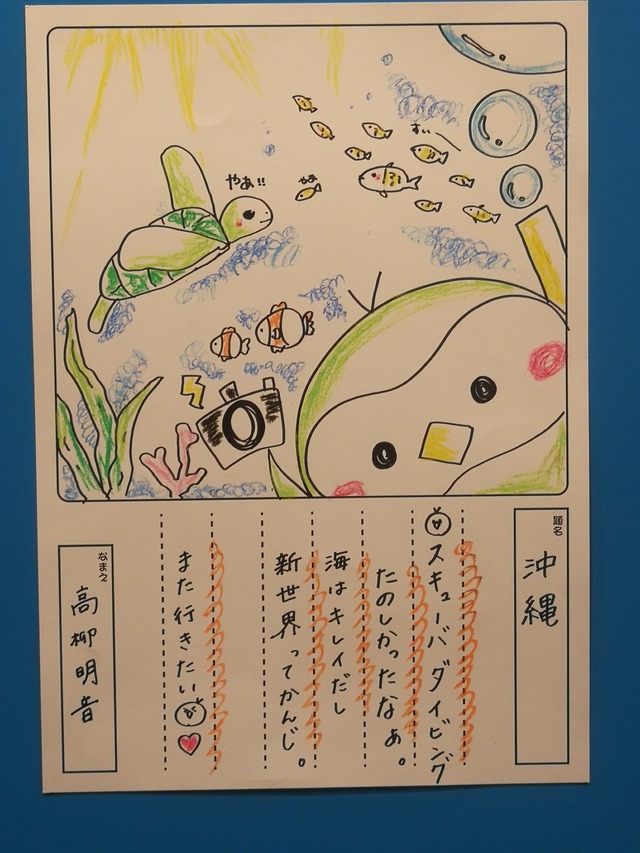 やぁ!!
やぁ
すぃ〜
題名
沖縄
スキューバダイビング
たのしかったなぁ。
海はキレイだし
新世界ってかんじ。
また行きたいが
なまえ
高柳明音